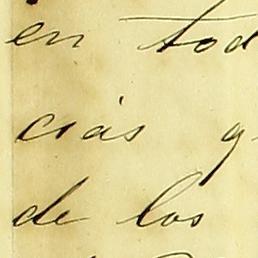 en tod
cias q
de los